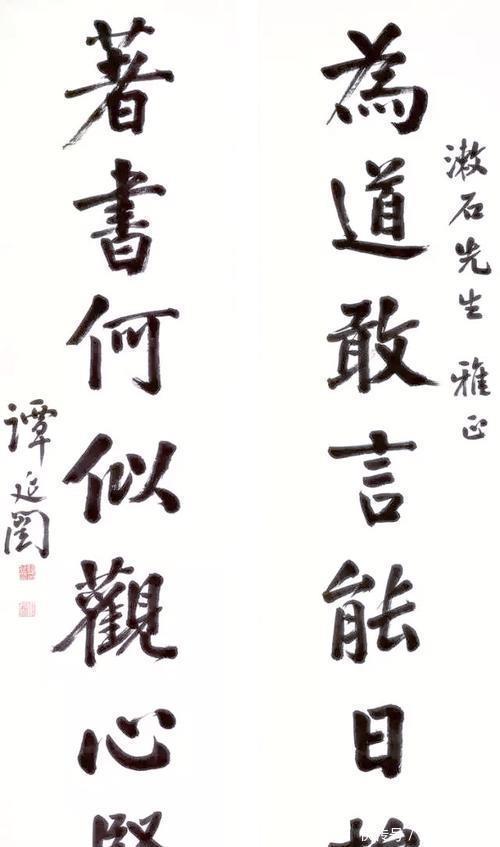 漱石先生 雅正
為道敢言能日
著書何似觀心
譚延闓
快传号 /